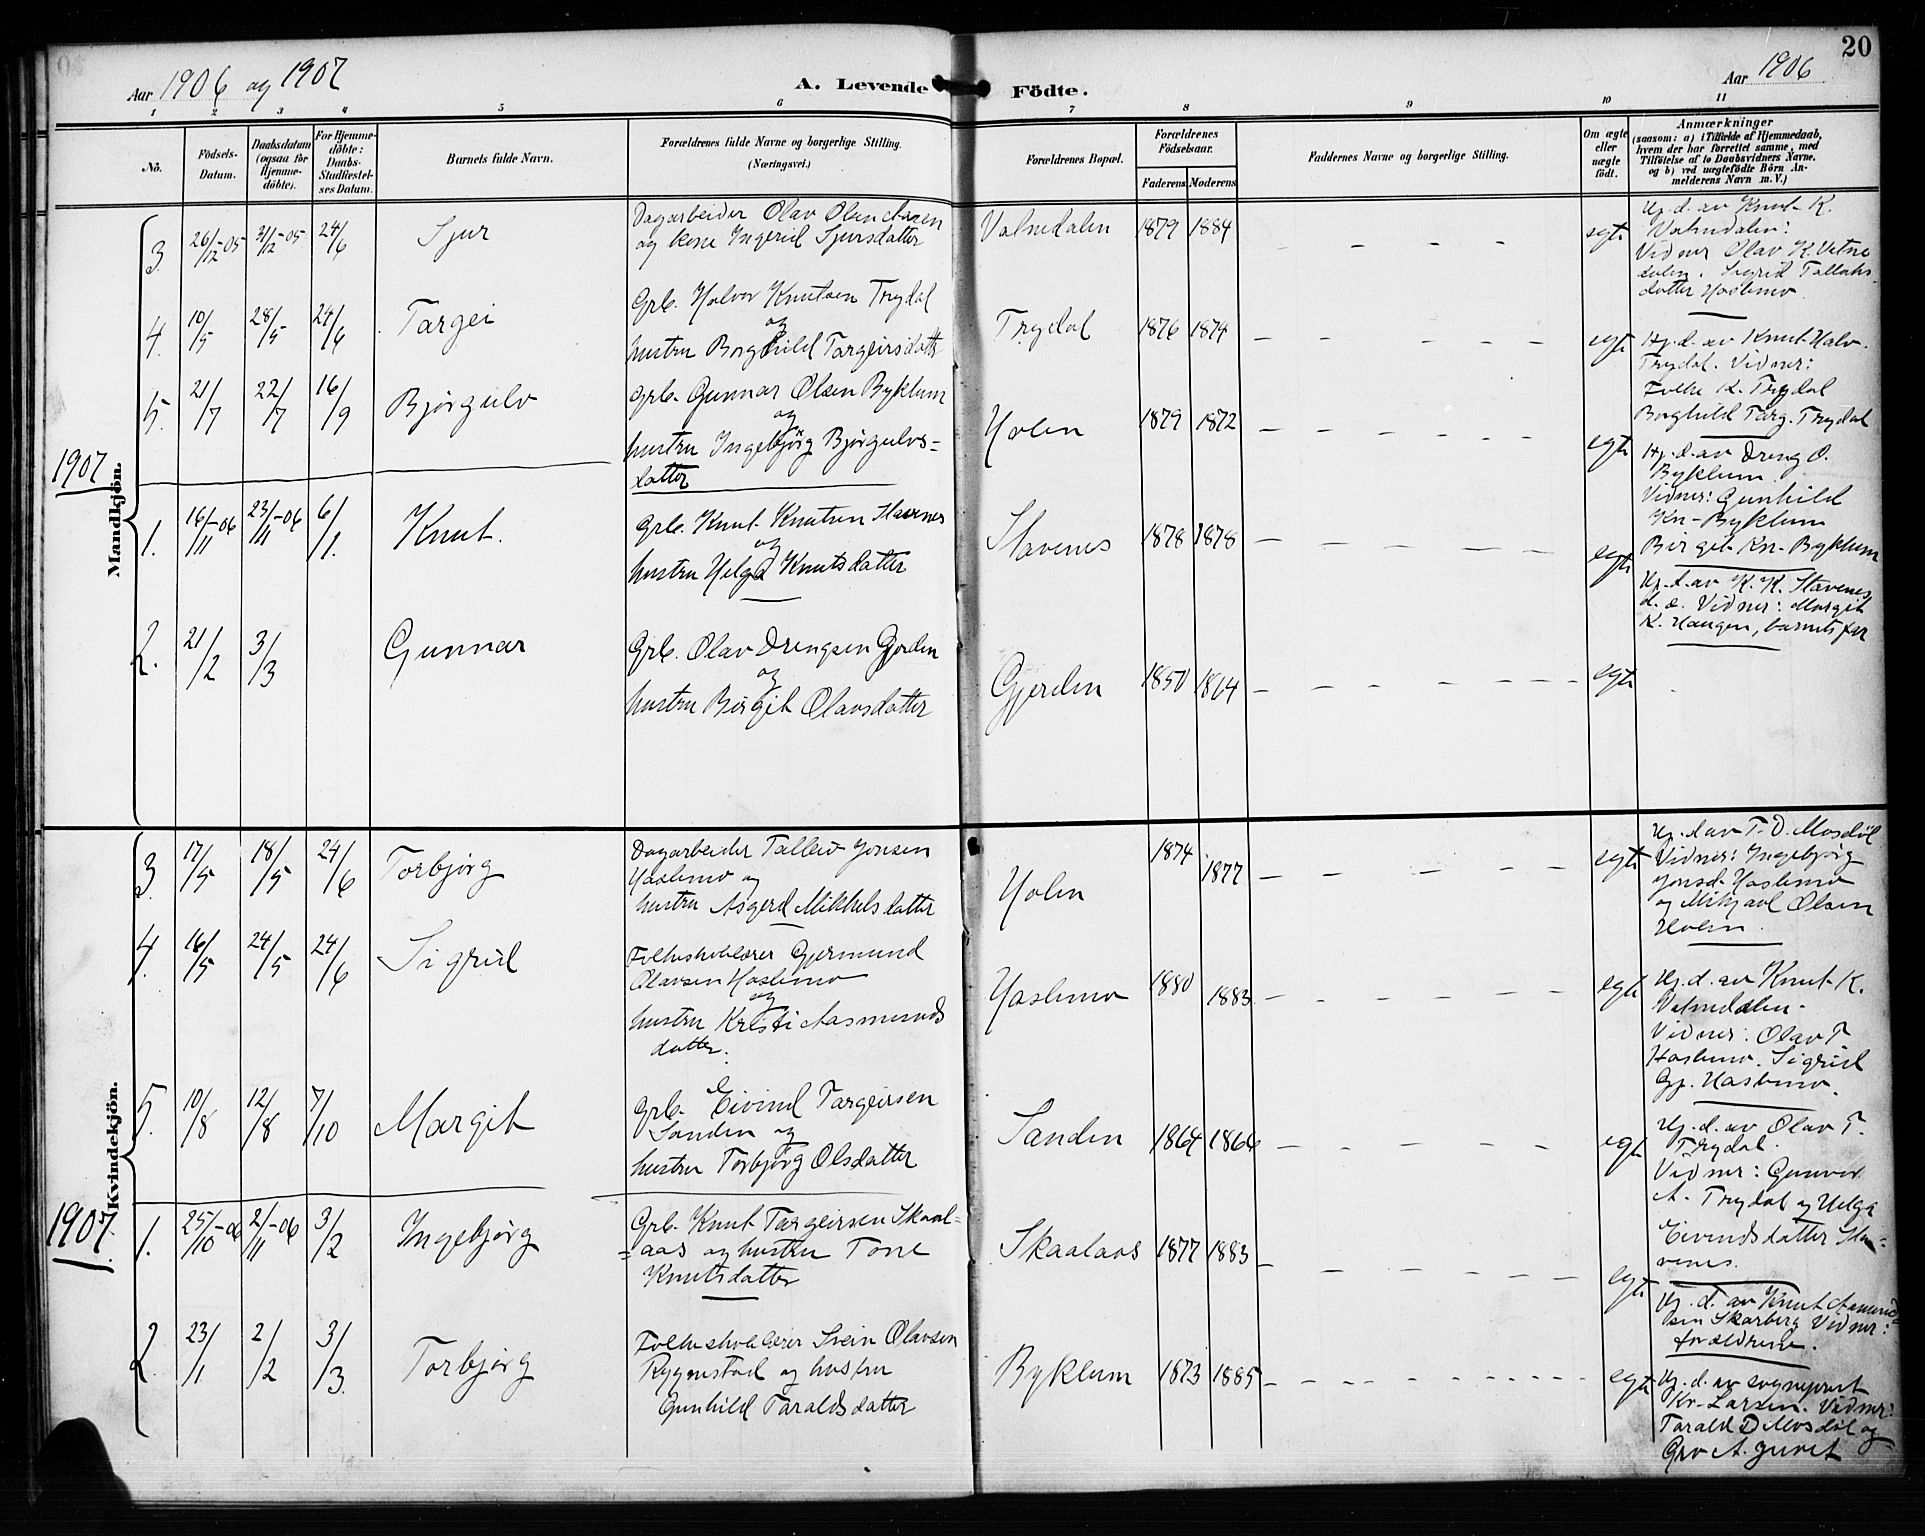 20
Aar 1906 og 1907
A. Levende Födte.
Aar 1906
1 2 3 4 5 6 7 8 9 10 11
No.
Födsels-Datum.
Daabsdatum (ogsaa for Hjemme-döbte).
For Hjemme-döbte: Daabs-Stadfæstel-ses Datum.
Barnets fulde Navn.
Forældrenes fulde Navne og borgerlige Stilling.
(Næringsvei.)
Forældrenes Bopæl.
Forældrenes Födselsaar.
Faderens Moderens
Faddernes Navne og borgerlige Stilling.
Om ægte eller uægte födt.
Anmærkninger
(saasom: a) i Tilfælde af Hjemmedaab,
hvem der har forrettet samme, med
Tilföielse af to Daabsvidners Navne,
og b) ved uægtefödte Börn An-
melderens Navn m. V.)
Mandkjön.
3. 26/12-05 31/12-05 24/6 Sjur
Dagarbeider Olav Olsen Aasen
og kone Ingerid Sjursdatter
Valnedalen 1879 1884 egte
Hj. d. av Knut K.
Valnedalen:
Vidner Olav K. Vatne
dalen. Sigrid Tallaks
datter Hoslemo.
4. 10/5 28/5 24/6 Targei
Grb. Halvor Knutsen Trydal
og
hustru Borghild Targeirsdatter
Trydal 1876 1874 egte
Hj. d. av Knut Halv.
Trydal. Vidner:
Folke K. Trydal
Borghild Targ. Trydal
5. 21/7 22/7 16/9 Bjørgulv
Grb. Gunnar Olsen Byklum
og
hustru Ingebjörg Bjørgulvs-
datter
Holen 1879 1872 egte
Hj. d. av Dreng O.
Byklum.
Vidner: Gunhild
Kn- Byklum
Birgit Kn- Byklum
1907
1. 16/11-06 23/11-06 6/1. Knut.
Grb. Knut Knutsen Stavenes
og
hustru Helga Knutsdatter
Stavenes 1878 1878 egte
Hj. d. av K. K. Stavenes
d. e. Vidner: Margit
K. Haugen, barnets far
2. 21/2 3/3 Gunnar
Grb. Olav Drengsen Gjerden
og
hustru Birgit Olavsdatter
Gjerden 1850 1864 egte
Kvindekjön.
3. 17/5 18/5 24/6 Torbjørg
Dagarbeider Talleiv Jonsen
Hoslemo og
hustru Asgerd Mikkelsdatter
Holen 1874 1877 egte
Hj. d av T. D. Mosdøl
Vidner: Ingebjørg
Jonsd. Hoslemo
og Mikjaal Olsen
Holen.
4. 16/5 24/5 24/6 Sigrid
Folkeskolelærer Gjermund
Olavsen Hoslemo
og
hustru Kristi Aasmunds
datter.
Hoslemo 1880 1883 egte
Hj. d. av Knut K.
Valnedalen.
Vidner: Olav T.
Hoslemo. Sigrid
Gj. Hoslemo.
5. 10/8 12/8 7/10 Margit
Grb. Eivind Targeirsen
Sanden og
hustru Torbjørg Olsdatter
Sanden 1864 1866 egte
Hj. d. av Olav T.
Trydal.
Vidner: Gunvor
A. Trydal og Helga
Eivindsdatter Sta=
venes.
1907.
1. 25/10-06 2/11-06 3/2 Ingebjørg
Grb. Knut Targeirsen Skaal=
=aas og hustru Tone
Knutsdatter
Skaalaas 1877 1883 egte
Hj. d. av Knut Aamund=
sen Skarberg Vidner:
forældrene.
2. 23/1 2/2 3/3. Torbjørg
Folkeskolelærer Svein Olavsen
Rygnestad og hustru
Gunhild Taraldsdatter
Byklum 1873 1885 egte
Hj. d. av sogneprest
Kr. Larsen. Vidner:
Tarald D Mosdøl og
Gro A. Juvet